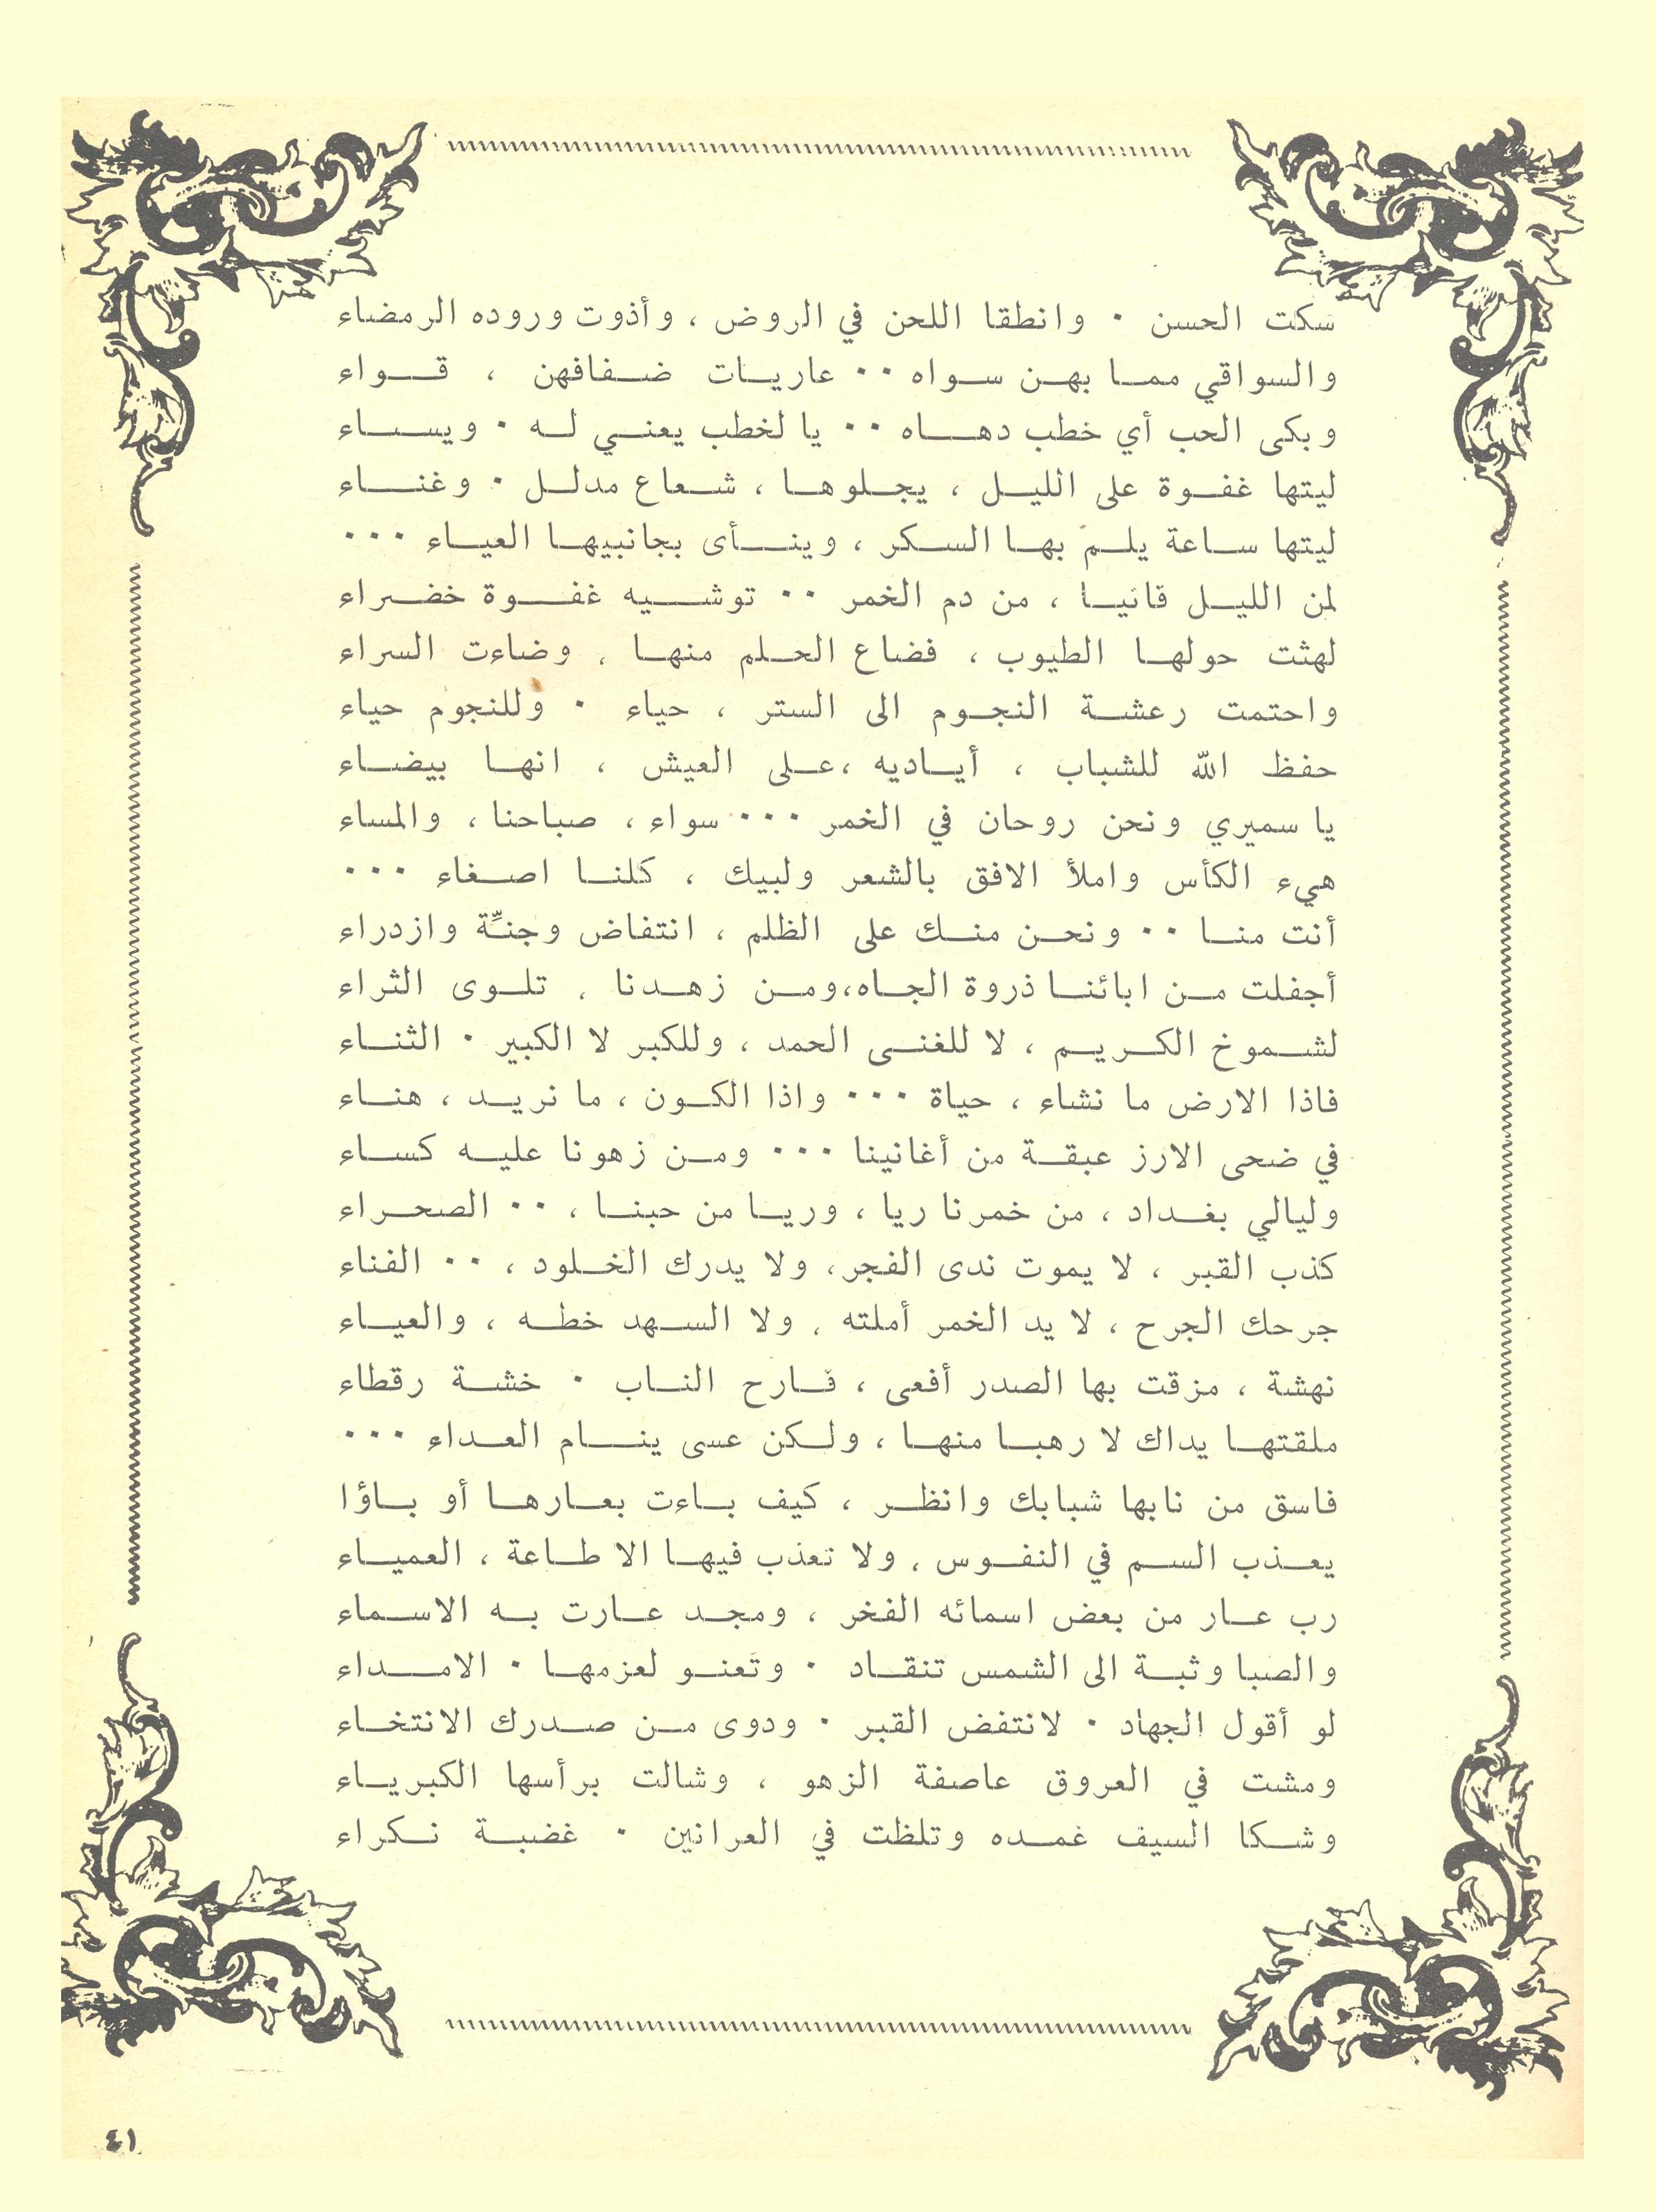 سكت الحسن . وانطقا اللحن في الروض ، وأذوت وروده الرمضاء
والسواقي مما بهن سواه .. عاريات ضفافهن ، قواء
وبكى الحب أي خطب دهاه .. يا لخطب يعني له . ويساء
ليتها غفوة على الليل ، يجلوها ، شعاع مدلل . وغناء
ليتها ساعة يلم بها السكر ، وينأى بجانبيها العياء ...
لمن الليل قانيا ، من دم الخمر .. توشيه غفوة خضراء
لهثت حولها الطيوب ، فضاع الحلم منها ، وضاءت السراء
واحتمت رعشة النجوم الى الستر ، حياء . وللنجوم حياء
حفظ الله للشباب ، أياديه ،على العيش ، انها بيضاء
يا سميري ونحن روحان في الخمر ... سواء ، صباحنا ، والمساء
هيء الكأس واملأ الافق بالشعر ولبيك ، كلنا اصغاء ...
أنت منا .. ونحن منك على الظلم ، انتفاض وجنَّة وازدراء
أجفلت من ابائنا ذروة الجاه،ومن زهدنا ، تلوى الثراء
لشموخ الكريم ، لا للغنى الحمد ، وللكبر لا الكبير . الثناء
فاذا الارض ما نشاء ، حياة ... واذا الكون ، ما نريد ، هناء
في ضحى الارز عبقة من أغانينا ... ومن زهونا عليه كساء
وليالي بغداد ، من خمرنا ريا ، وريا من حبنا ، .. الصحراء
كذب القبر ، لا يموت ندى الفجر، ولا يدرك الخلود ، .. الفناء
جرحك الجرح ، لا يد الخمر أملته ، ولا السهد خطه ، والعياء
نهشة ، مزقت بها الصدر أفعى ، قارح الناب . خشة رقطاء
ملقتها يداك لا رهبا منها ، ولكن عسى ينام العداء ...
فاسق من نابها شبابك وانظر ، كيف باءت بعارها أو باؤا
يعذب السم في النفوس ، ولا تعذب فيها الا طاعة ، العمياء
رب عار من بعض اسمائه الفخر ، ومجد عارت به الاسماء
والصبا وثبة الى الشمس تنقاد . وتعنو لعزمها . الامداء
لو أقول الجهاد . لانتفض القبر . ودوى من صدرك الانتخاء
ومشت في العروق عاصفة الزهو ، وشالت برأسها الكبرياء
وشكا السيف غمده وتلظت في العرانين . غضبة نكراء
٤١